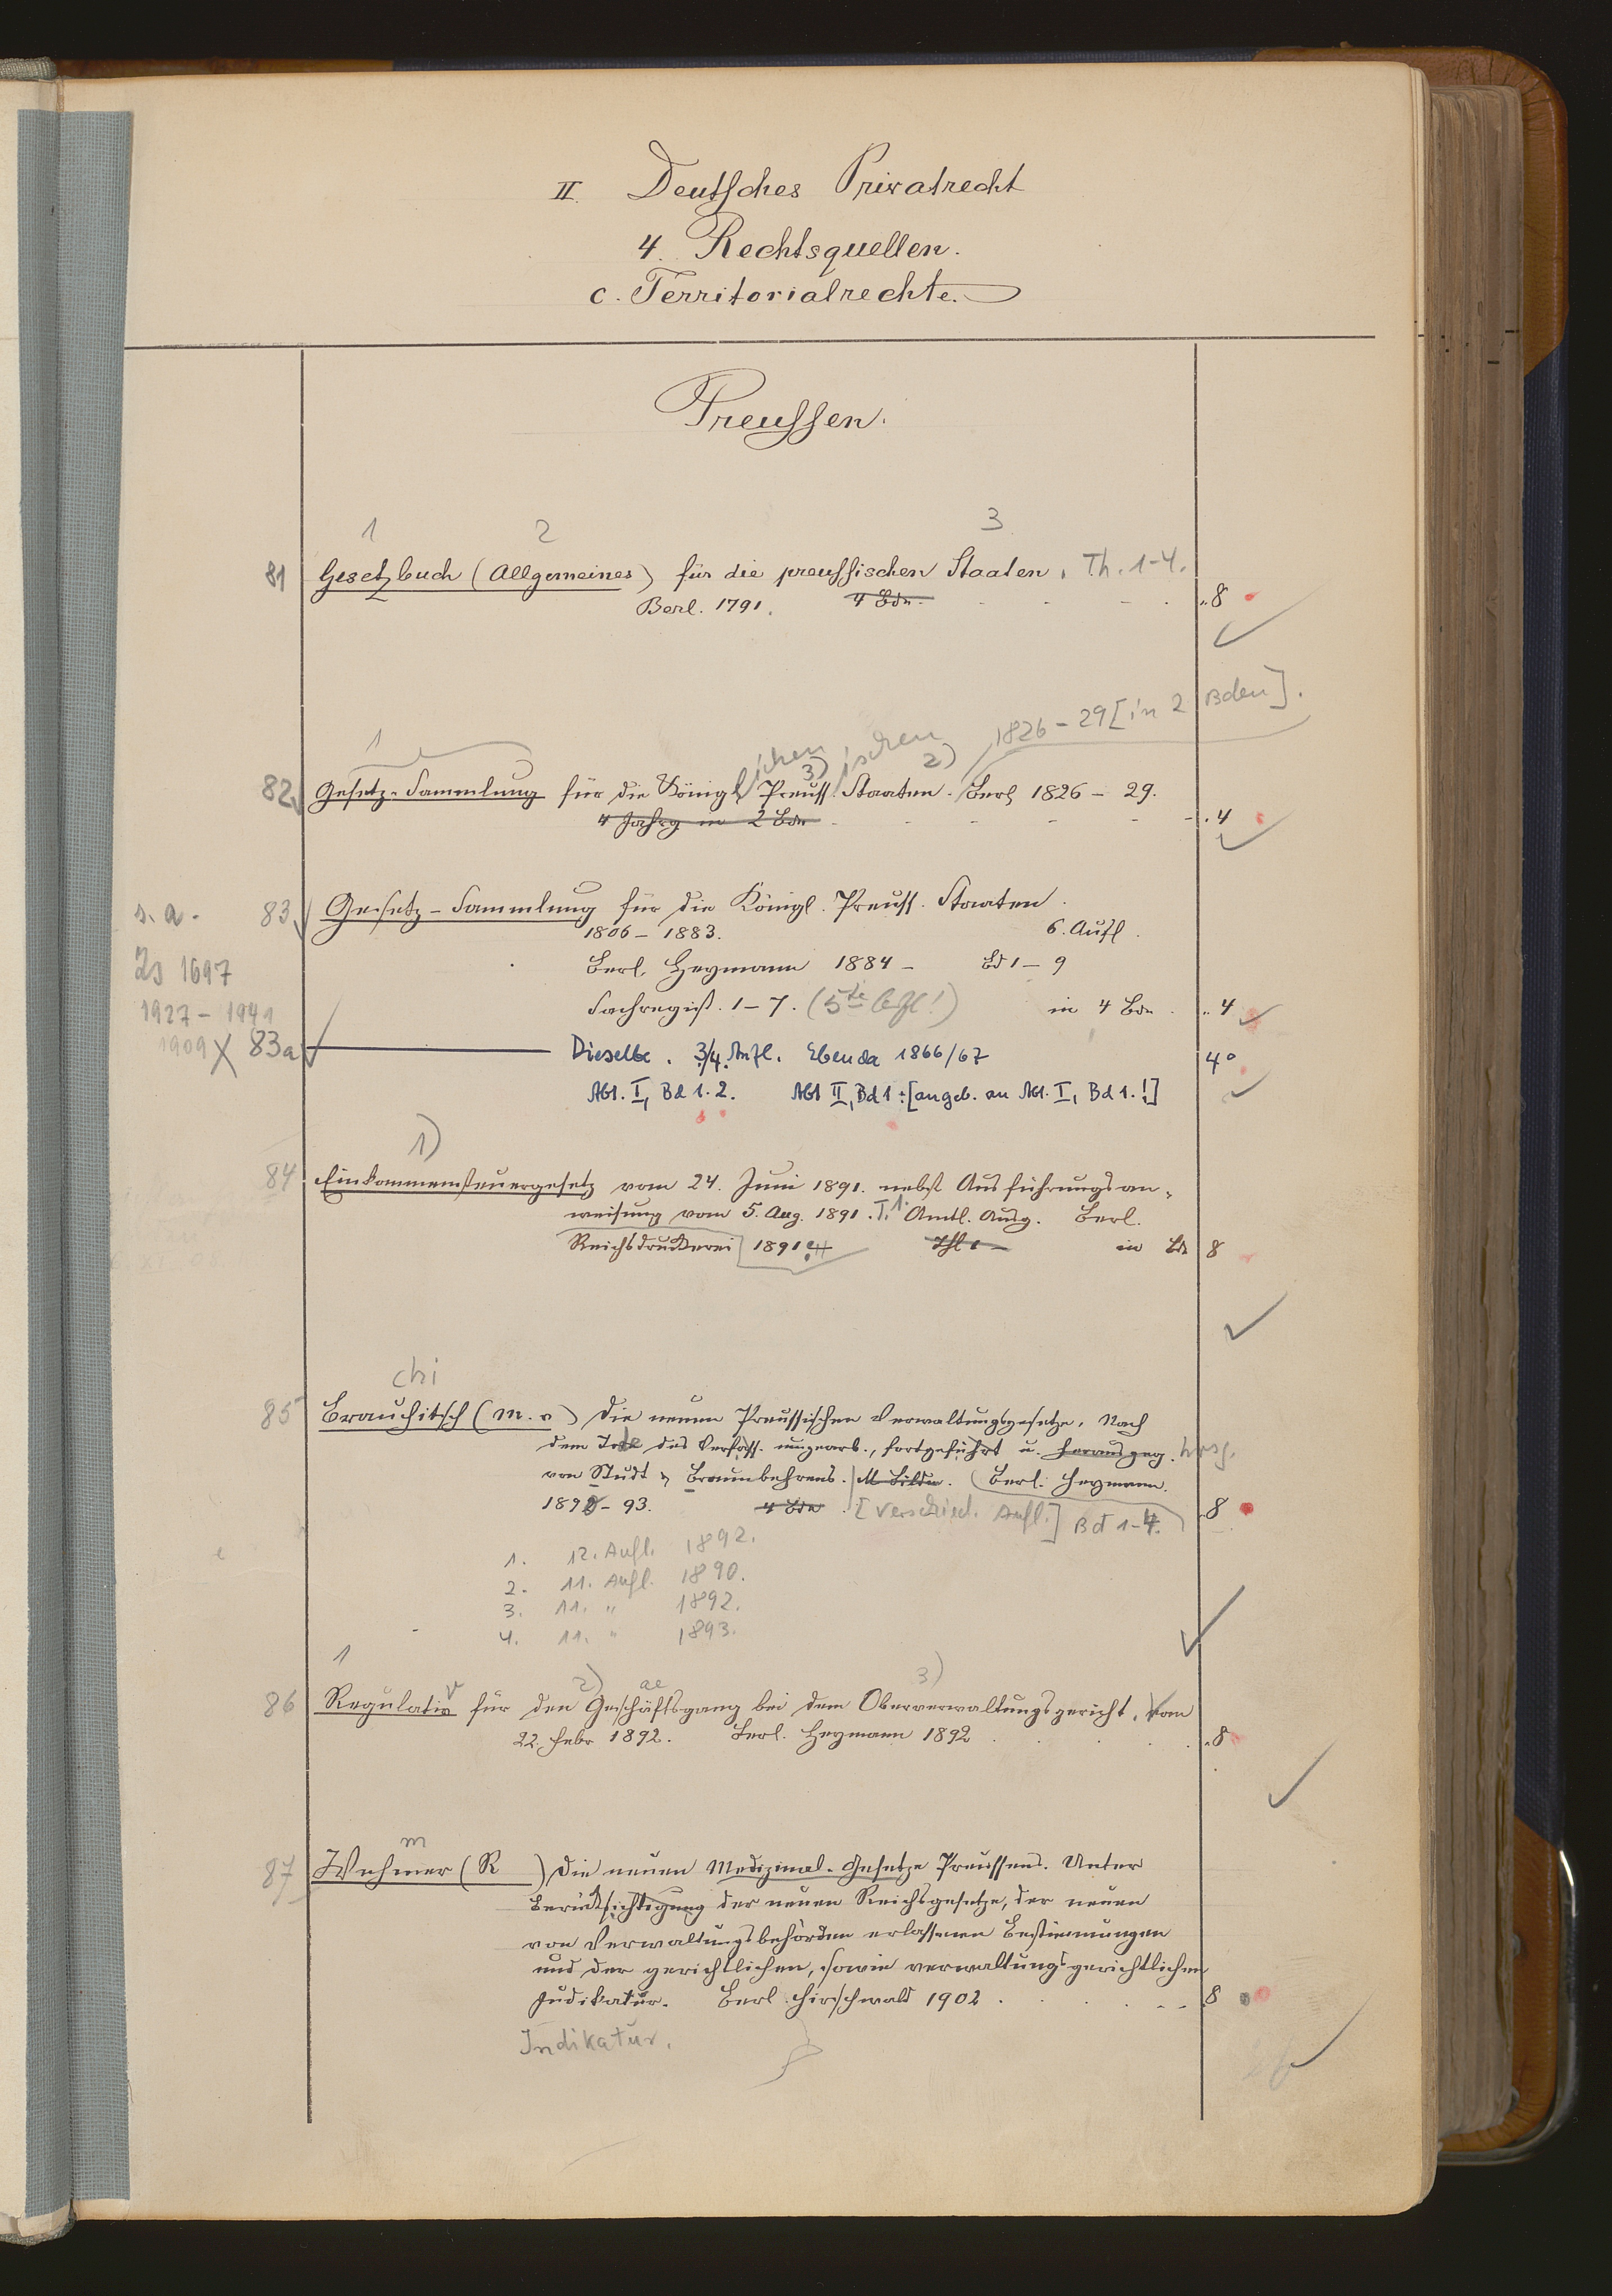 II. Deutsches Privatrecht
4. Rechtsquellen.
c. Territorialrechte.
Preussen.
1 2 3
81 Gesetzbuch (Allgemeines) für die preussischen Staaten. Th. 1-4.
Berl. 1791. 4 Bde. 8
1826-29 [in 2 Bden].
1 ischen 3) ischen 2)
82 Gesetz-Sammlung für die Königl. Preuss. Staaten. Berl. 1826 - 29.
4 Jahrg in 2 Bdn 4
s. a. 83 Gesetz-Sammlung für die Königl. Preuss. Staaten.
1806 - 1883. 6. Aufl.
Zs 1697
Berl. Heymann 1884 - Bd 1 - 9
1927 - 1941 Sachregist. 1-7. (5te Aufl!) in 4 Bdn. 4
1909 X 83a Dieselbe. 3/4. Aufl. Ebenda 1866/67 4°
Abt. I, Bd 1. 2. Abt II, Bd 1 : [angeb. an Abt. I, Bd 1.!]
1)
84 Einkommensteuergesetz vom 24. Juni 1891. nebst Ausführungsan-
weisung vom 5. Aug. 1891. T. 1. Amtl. Ausg. Berl.
Reichsdruckerei 1891 Thl 1 - in Bd 8
chi
85 Brauchitsch (M. v) Die neuen Preussischen Verwaltungsgesetze. Nach
dem Tode des Verfass. umgearb., fortgeführt u. herausgeg. hrsg.
von Studt & Braunbehrens. M. Bildn. (Berl. Heymann.
1890 - 93. 4 Bde. [Verschied. Aufl.] Bd 1-4. 8
1. 12. Aufl. 1892.
2. 11. Aufl. 1890.
3. 11. " 1892.
4. 11. " 1893.
1 2) ae 3)
86 Regulativ für den Geschäftsgang bei dem Oberverwaltungsgericht. Vom
22. Febr 1892. Berl. Heymann 1892 8
m
87 Wehmer (R ) Die neuen Medizinal-Gesetze Preussens. Unter
Berücksichtigung der neuen Reichsgesetze, der neuen
von Verwaltungsbehörden erlassenen Bestimmungen
und der gerichtlichen, sowie verwaltungsgerichtlichen
Judikatur. Berl. Hirschwald 1902. 8
Indikatur.